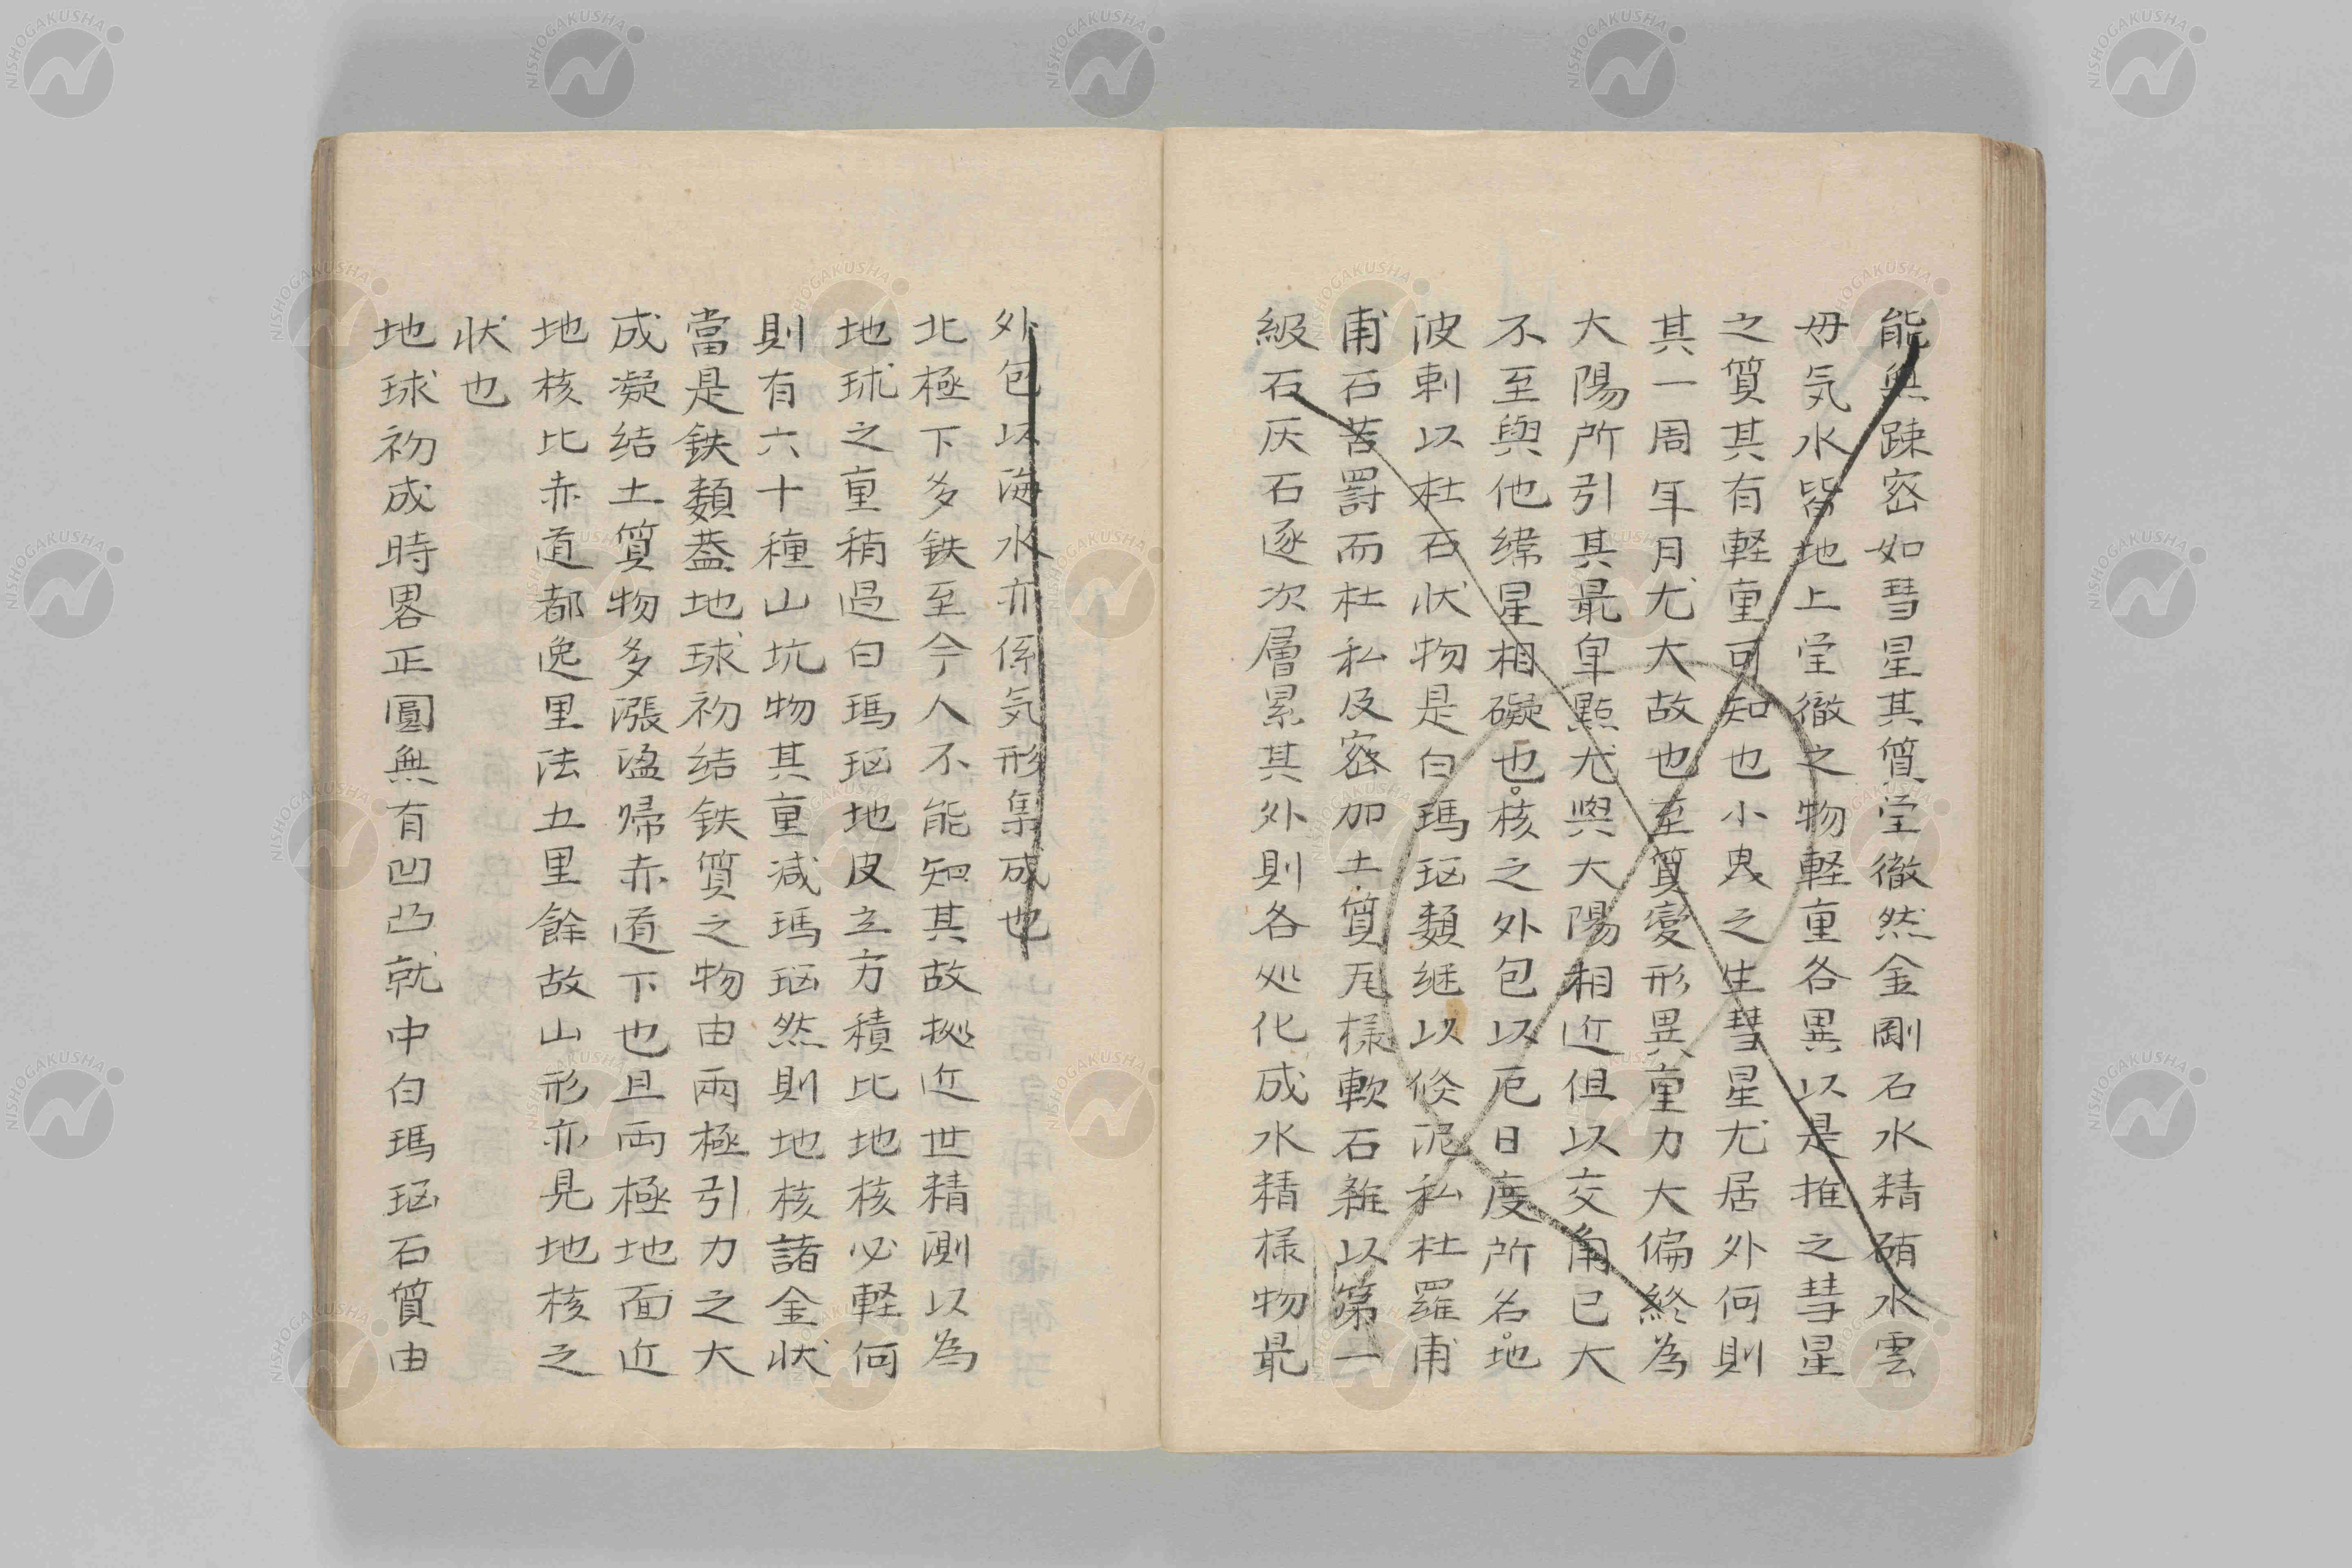 能無踈密如彗星其質瑩徹然金剛石水精硝水雲
毋気水皆地上瑩徹之物軽重各異以是推之彗星
之質其有軽重可知也小曳之生彗星尤居外何則
其一周年月尤大故也至質變形異重力大偏終為
大陽所引其最卑點尤與大陽相近但以交角已大
不至與他緯星相礙也核之外包以厄日度所名地
波刺以杜石状物是白瑪瑙類継以倏泥私杜羅甫
甫石苦罸而杜私及密加土質瓦樣軟石雑以第一
級石灰石逐次層累其外則各処化成水精様物最
外包以海水亦係気形集成也
北極下多鉄至今人不能知其故拠近世精測以為
地球之重稍過白瑪瑙地皮立方積比地核必軽何
則有六十種山坑物其重减瑪瑙然則地核諸金状
當是鉄類葢地球初结鉄質之物由兩極引力之大
成凝结土質物多漲溢帰赤道下也且両極地面近
地核比赤道都逸里法五里餘故山形亦見地核之
状也
地球初成時畧正圓無有凹凸就中白瑪瑙石質由
NISHOGAKUSHA